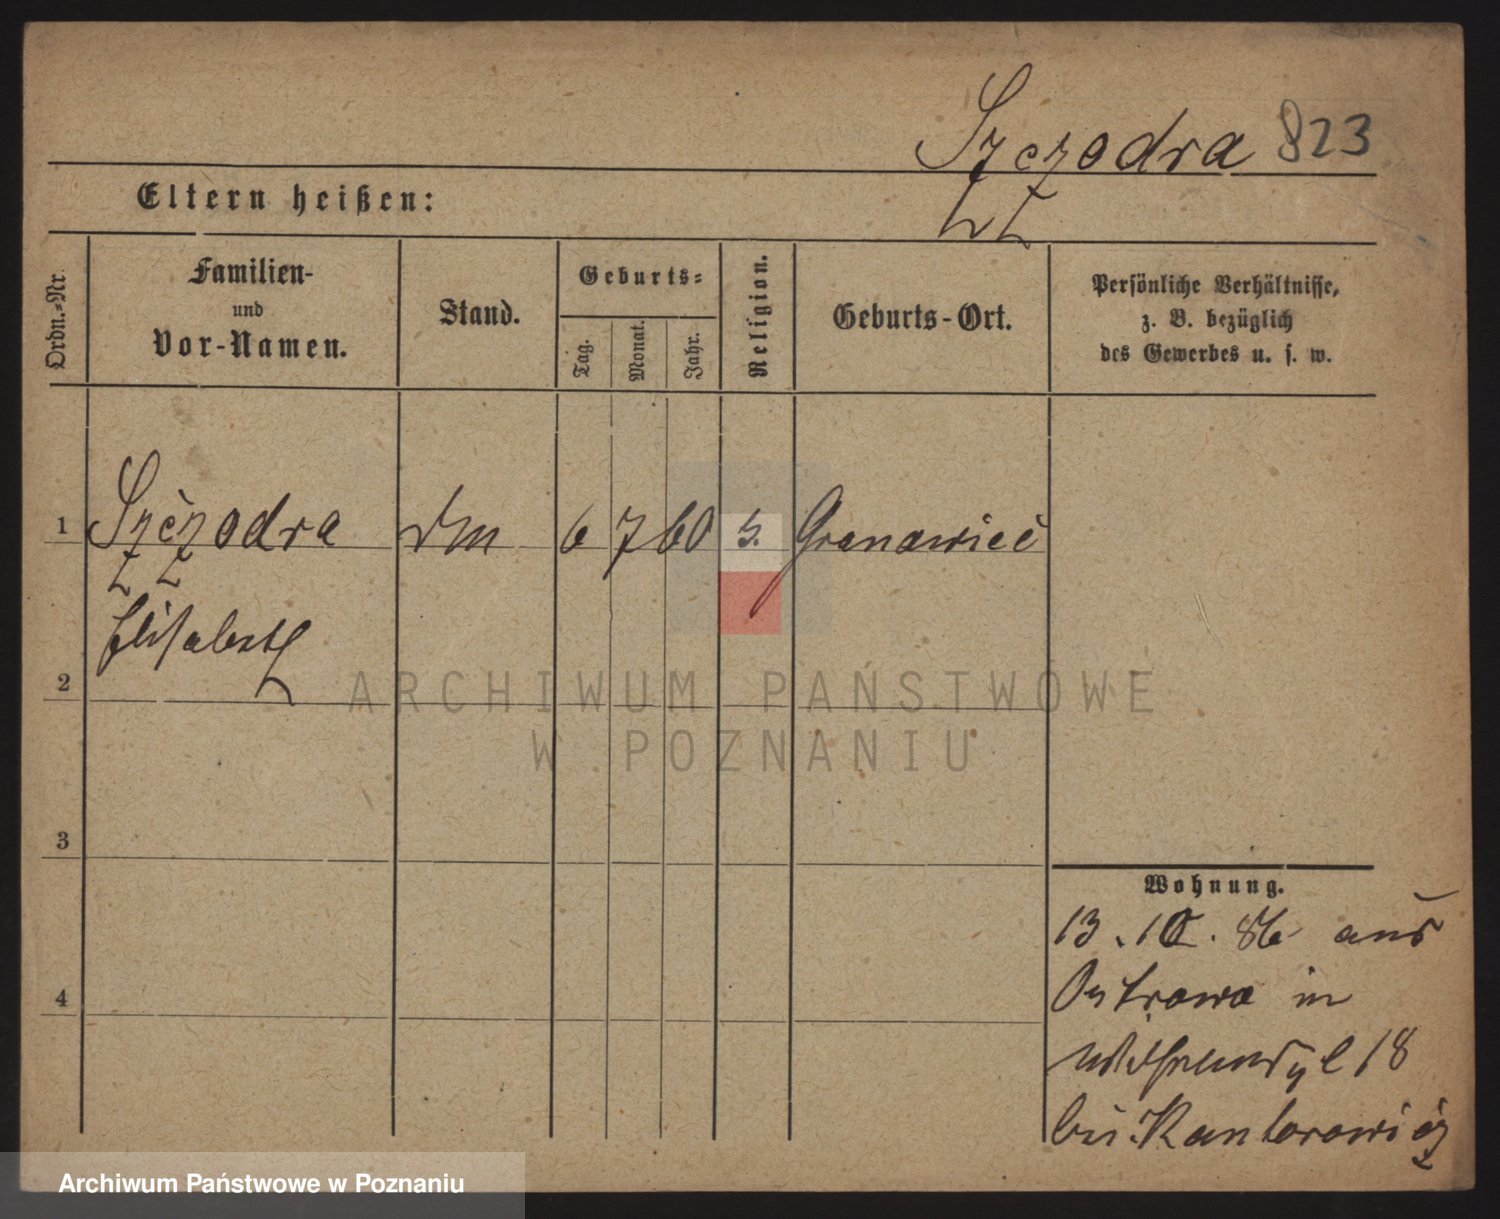 Szczodra 823
Eltern heißen:
Ordn.-Nr.
Familien-
und
Vor-Namen.
Stand.
Geburts-
Tag.
Monat.
Jahr.
Religion.
Geburts-Ort.
Persönliche Verhältnisse,
z. B. bezüglich
des Gewerbes u. s. w.
1 Szczodra 6 7 60
Elisabeth
2
ARCHIWUM PAŃSTWOWE
W POZNANIU
3
4
Wohnung.
13. 10. 86 aus
Ostrowo in
18
bei Kantorowicz
Archiwum Państwowe w Poznaniu